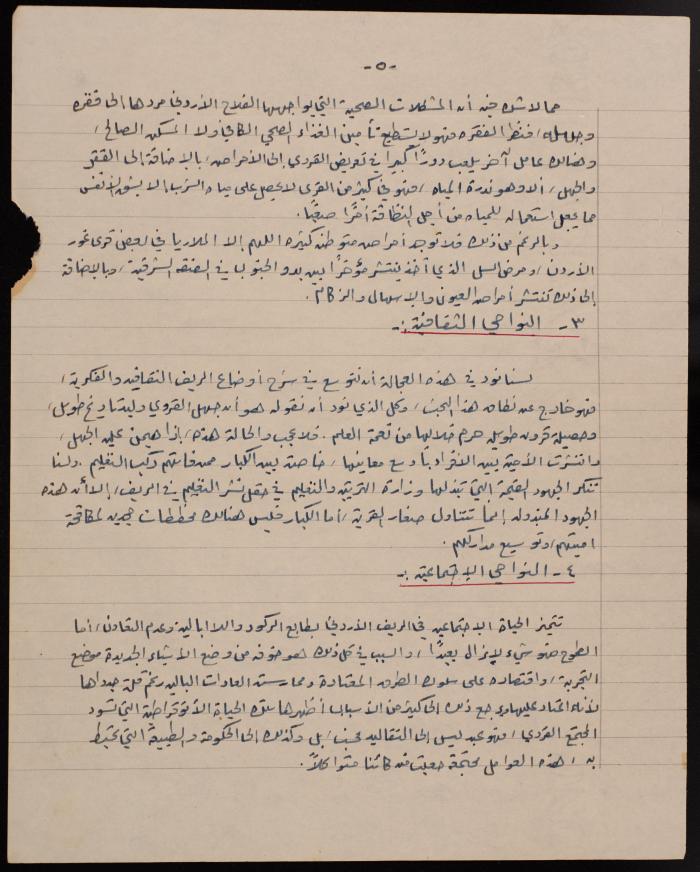 -٥-
مما لا شك فيه أن المشكلات الصحية التي يواجهها الفلاح الأردني مردها الى فقره
وجهله، فنظراً لفقره فهو لا يستطيع تأمين الغذاء الصحي الكافي ولا المسكن الصالح،
وهنالك عامل آخر يلعب دوراً كبيراً في تعريض القروي إلى الأمراض، بالإضافة إلى الفقر
والجهل، ألا وهو ندرة المياه، فهو في كثير من القرى لا يحصل على مياه الشرب إلا بشق الأنفس
مما يجعل استعماله للمياه من أجل النظافة أمراً صعباً.
وبالرغم من ذلك فلا توجد أمراض متوطنة كثيرة اللهم إلا الملاريا في بعض قرى غور
الأردن، ومرض السل الذي أخذ ينتشر مؤخراً بين بدو الجنوب في الضفة الشرقية، وبالإضافة
إلى ذلك تنتشر أمراض العيون والإسهال والزكام.
٣- النواحي الثقافية :-
لسنا نود في هذه العجالة أن نتوسع في شرح أوضاع الريف الثقافية والفكرية،
فهو خارج عن نطاق هذا البحث، وكل الذي نود أن نقوله هو أن جهل القروي وليد تاريخ طويل،
وحصيلة قرون طويلة حرم خلالها من نعمة العلم. فلا عجب والحالة هذه، إذا هيمن عليه الجهل،
وانتشرت الأمية بين الأفراد بأوسع معانيها، خاصة بين الكبار ممن فاتهم ركب التعليم. ولسنا
ننكر الجهود القيمة التي تبذلها وزارة التربية والتعليم في حقل نشر التعليم في الريف، إلا أن هذه
الجهود المبذولة إنما تتناول صغار القرية، أما الكبار فليس هنالك مخططات لمكافحة
أميتهم وتوسيع مداركهم.
٤- النواحي الإجتماعية :-
تتميز الحياة الإجتماعية في الريف الأردني بطابع الركود واللاابالية وعدم التعاون، أما
الطموح فهو شيء لا يزال بعيداً، والسبب في كل ذلك هو خوفه من وضع الأشياء الجديدة موضع
التجربة، واقتصاره على سلوك الطرق المعتادة وممارسة العادات البالية رغم قلة جدواها
لأنه اعتاد عليها ومرجع ذلك إلى كثير من الأسباب أظهرها سلوك الحياة الأوتوقراطية التي تسود
المجتمع القروي، فهو عبد ليس إلى التقاليد فحسب، بل وكذلك إلى الحكومة والطبيعة التي تحيط
به، هذه العوامل مجتمعة جعلت منه كائناً متواكلاً.